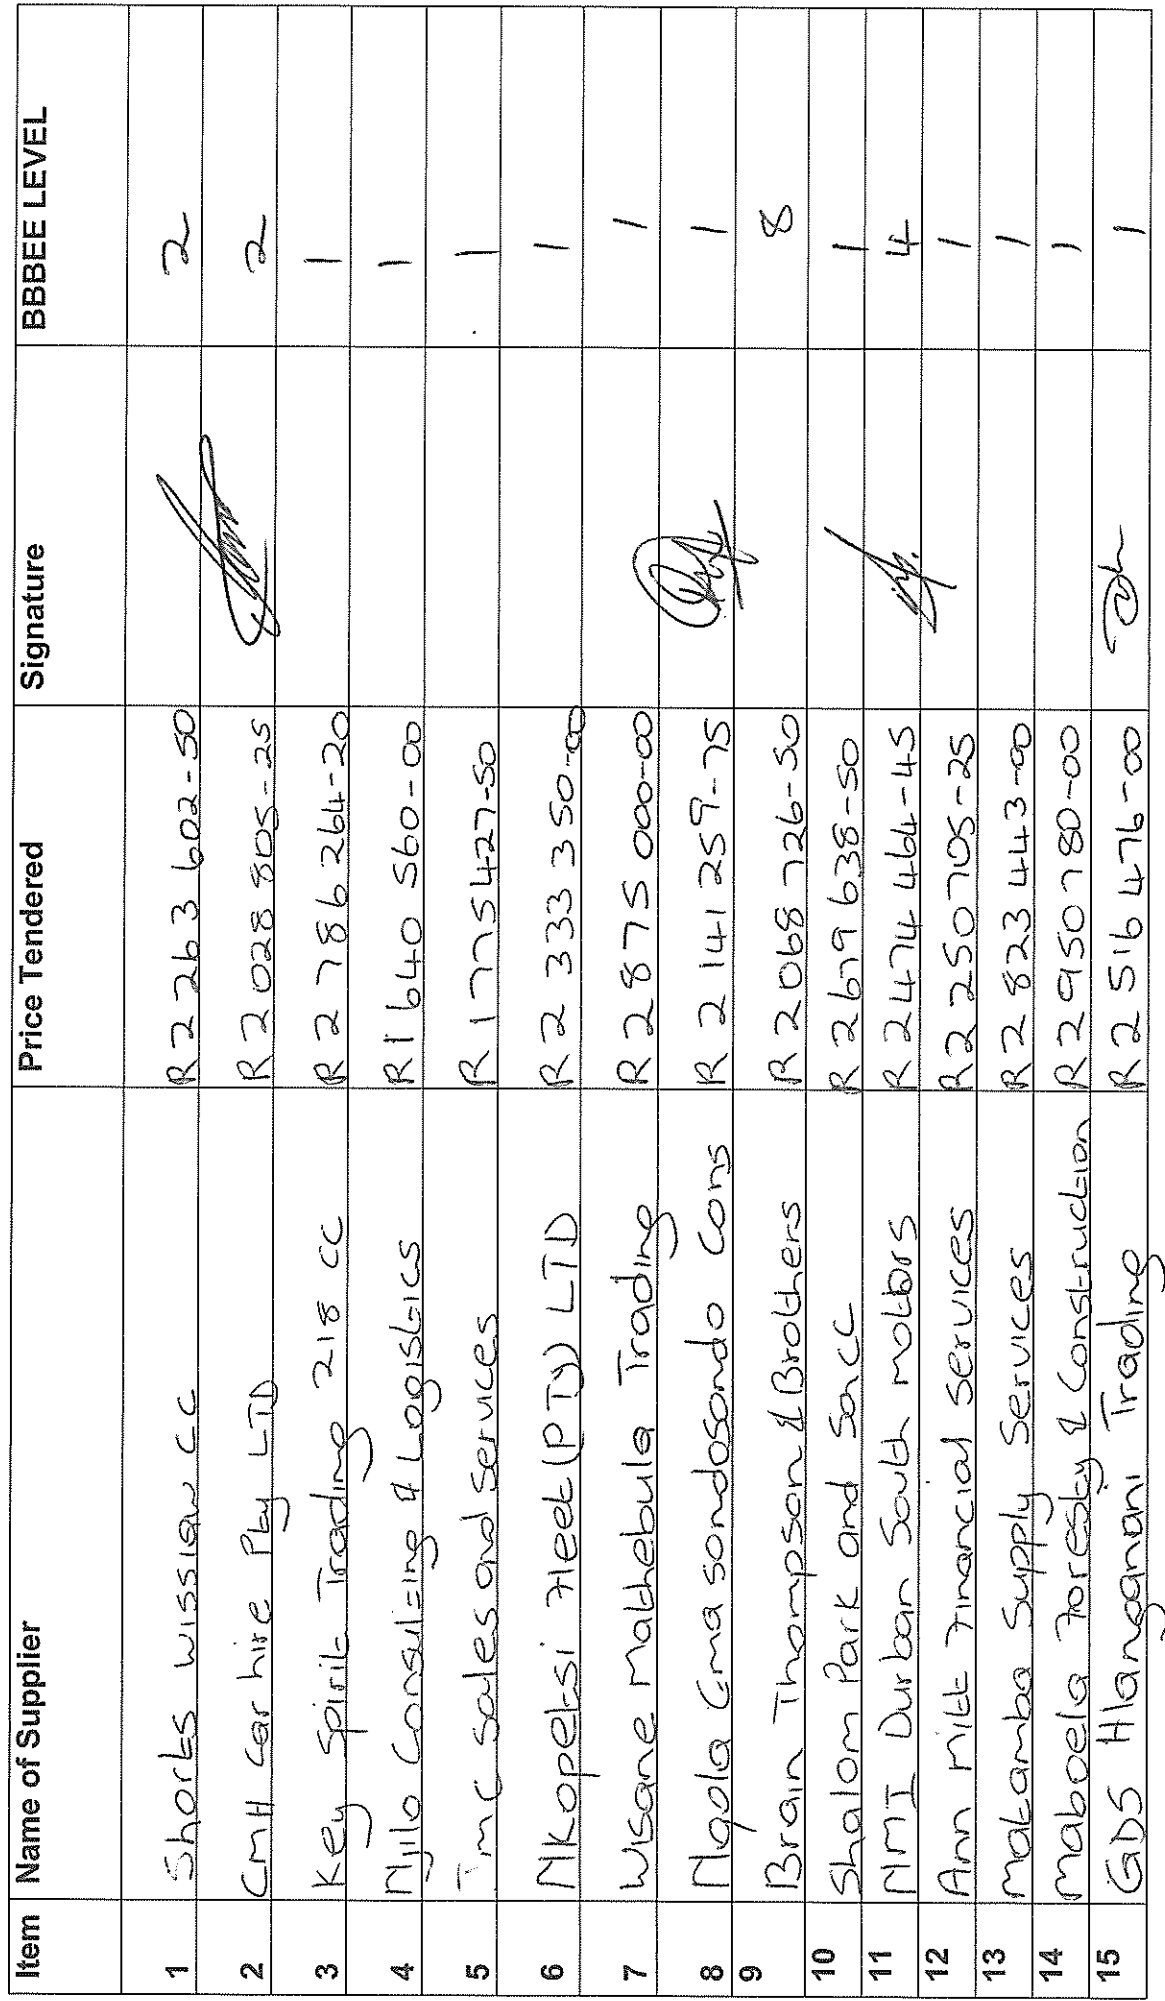 Item Name of Supplier Price Tendered Signature BBBEE LEVEL
1 Shorts Wissiaw CC R2 263 602-50 2
2 CMH Car hire Pty LTD R2 028 805-25 2
3 Key Spirit Trading 218 CC R2 786 264-20 1
4 Njilo Consulting & Logistics R1 640 560-00 1
5 Tmc Sales and Services R 1775 427-50 1
6 Nkopetsi Fleet (PTY) LTD R2 333 350-00 1
7 Wisane Mathebula Trading R2875 000-00 1
8 Ngola Cma sondosondo Cons R 2 141 259-75 1
9 Brain Thompson & Brothers R 2068 726-50 8
10 Shalom Park and Son CC R2679 638-50 1
11 NMI Durban South motors R2474 464-45 4
12 Ann Financial Services R2250705-25 1
13 Matamba Supply Services R2 823 443-00 1
14 Maboela Forestry & Construction R2950780-00 1
15 GDS Hlanganani Trading R2 516 476-00 1